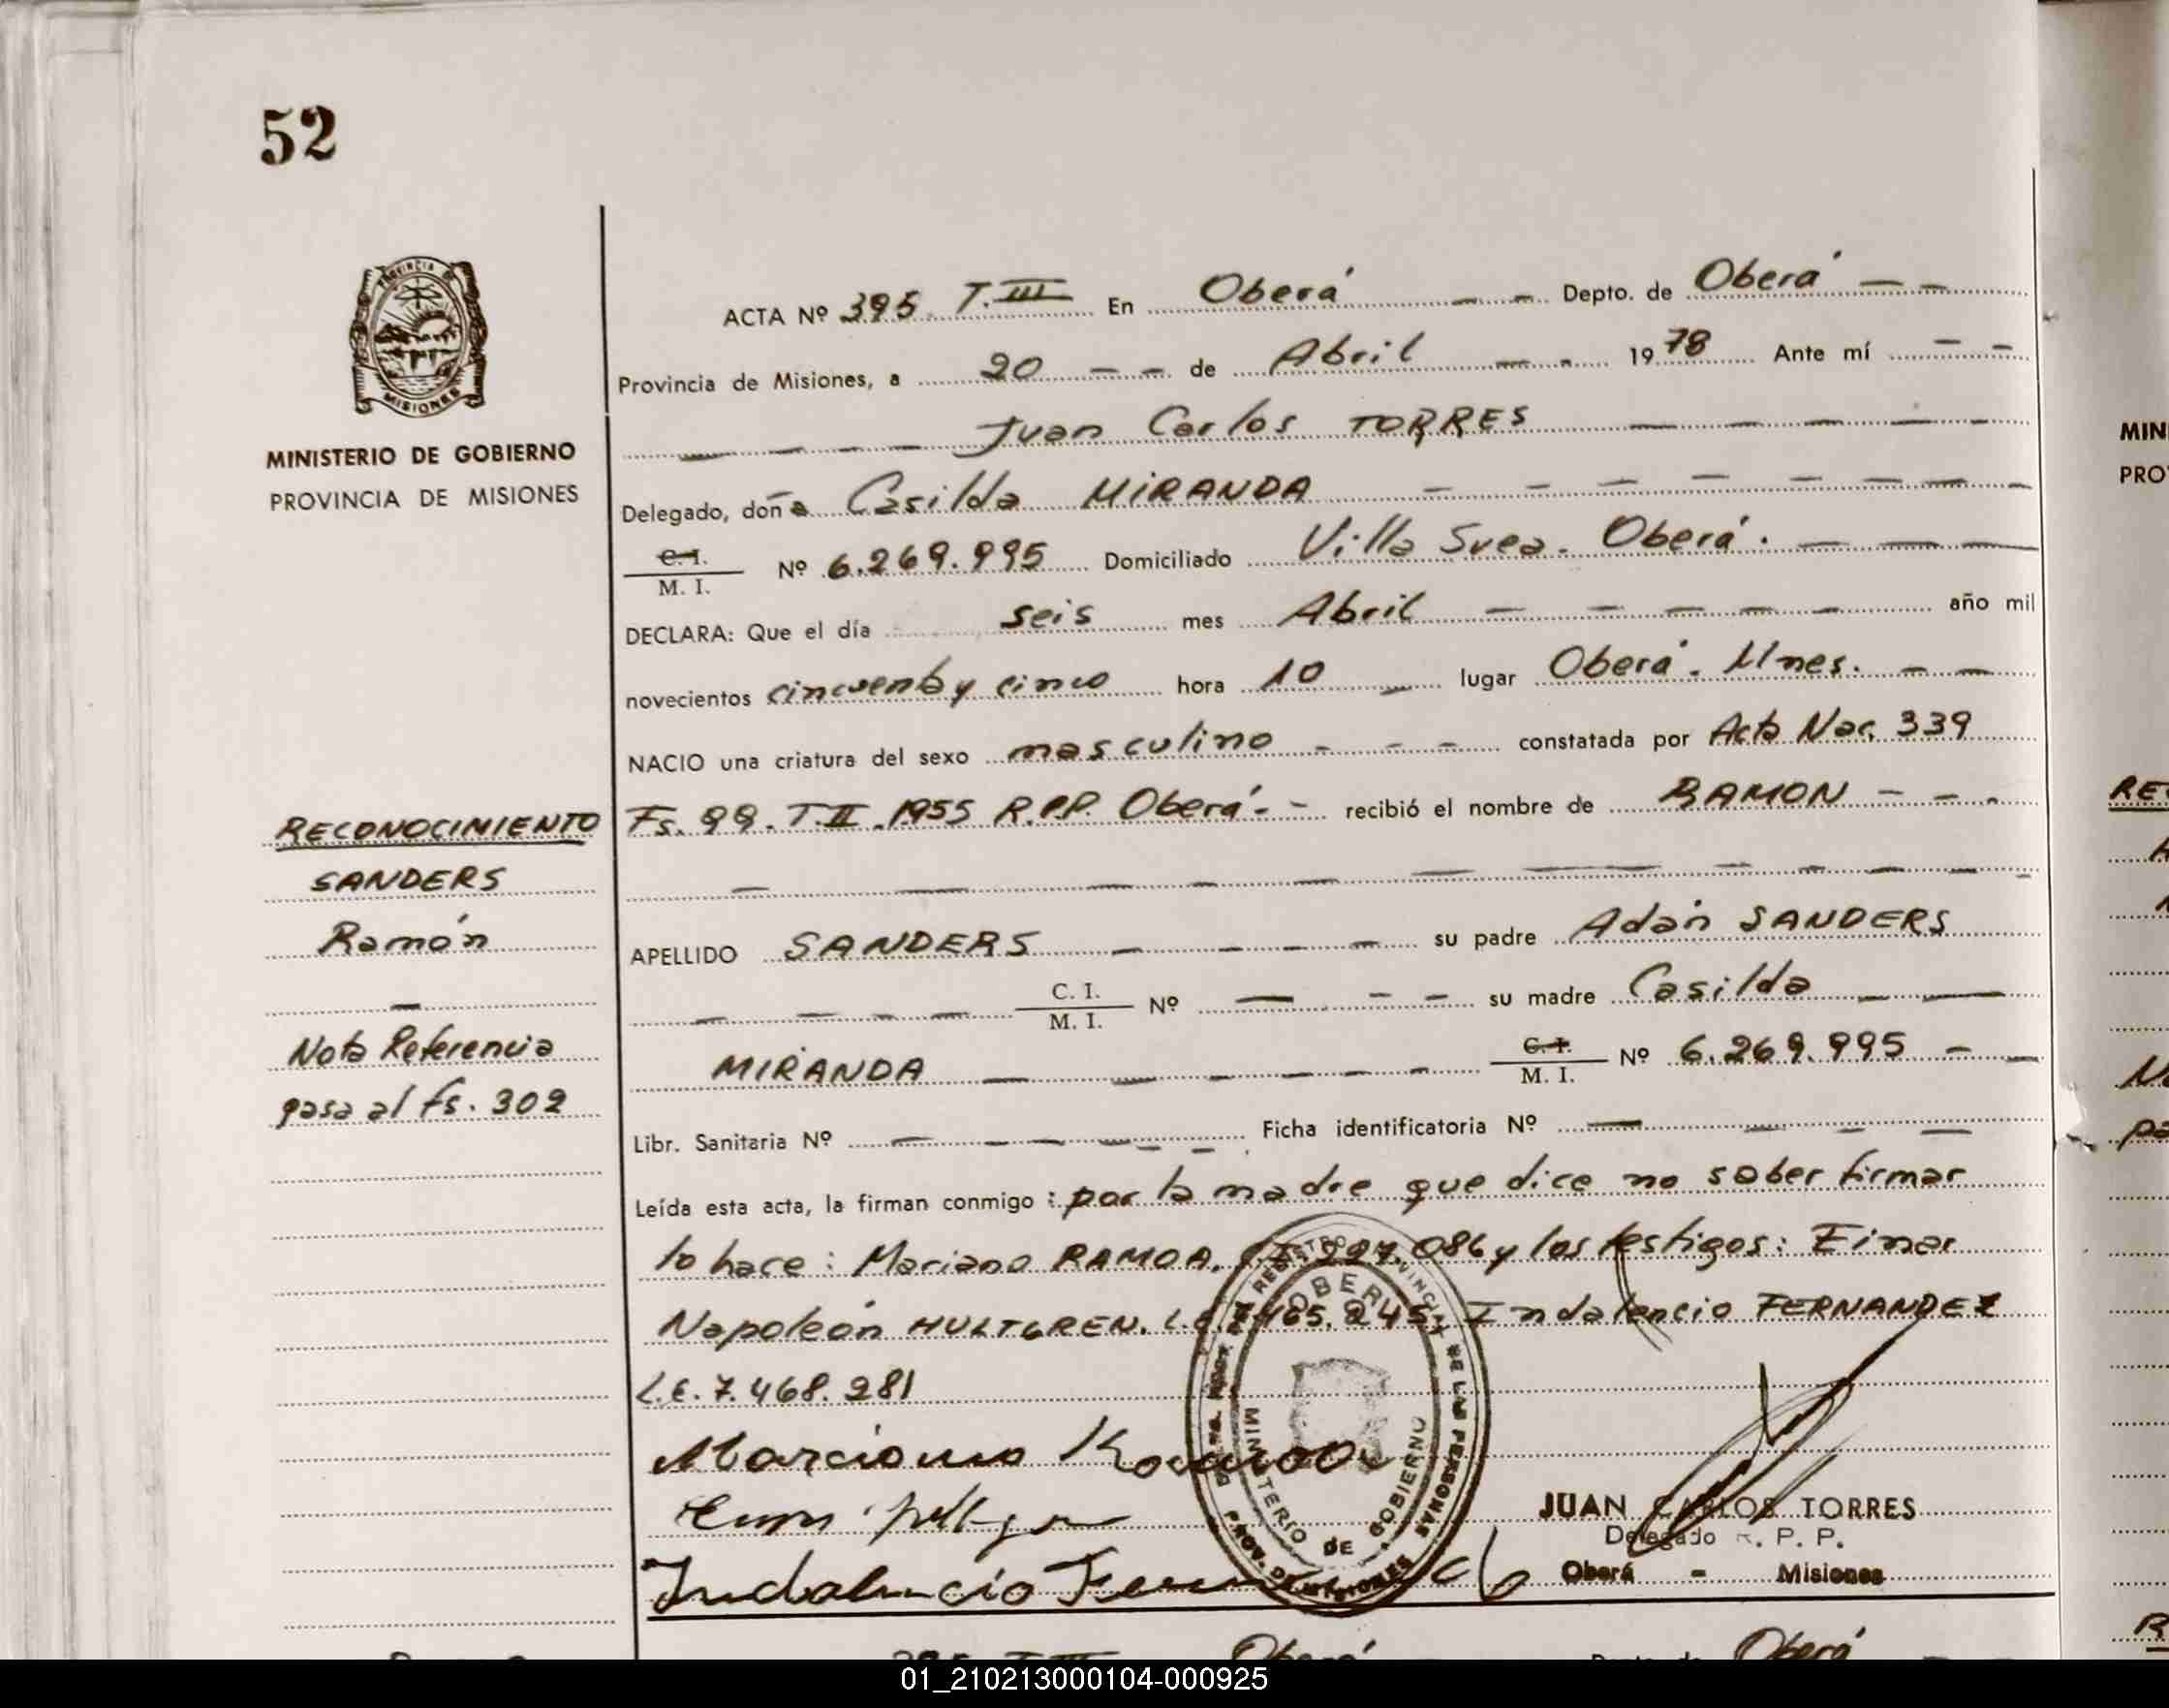 52
PROVINCIA DE
MISIONES
MINISTERIO DE GOBIERNO
PROVINCIA DE MISIONES
RECONOCIMIENTO
SANDERS
Ramón
—
Nota Referencia
pasa al fs. 302
ACTA Nº 395 T.III En Oberá — — Depto. de Oberá — —
Provincia de Misiones, a 20 — — de Abril — - 1978 Ante mí — —
— — — — Juan Carlos TORRES — — — — —
Delegado, doña Casilda MIRANDA — — — — — — —
C. I.
M. I. Nº 6.269.995 Domiciliado Villa Svea. Oberá. — — —
DECLARA: Que el día seis mes Abril — — — — — año mil
novecientos cincuenta y cinco hora 10 — lugar Oberá. Mnes. — —
NACIO una criatura del sexo masculino - - - constatada por Acta Nac. 339
Fs. 99. T.II. 1955 R.P.P. Oberá. - recibió el nombre de RAMON — — -
— — — — — — — — — — —
APELLIDO SANDERS — — — — su padre Adán SANDERS
— — — — C. I.
M. I. Nº — — — su madre Casilda — —
MIRANDA — — — — — — C. I.
M. I. Nº 6.269.995 — —
Libr. Sanitaria Nº — — — — — Ficha identificatoria Nº — — — —
Leída esta acta, la firman conmigo : por la madre que dice no saber firmar
lo hace : Mariano RAMOA. 086 y los testigos: Einar
Napoleón HULTGREN. L.E. 465.245, Indalencio FERNANDEZ
L.E. 7.468.281
Marciano Ramoa
Indalencio
REGISTRO PROVINCIAL DE LAS PERSONAS
OBERA
MINISTERIO DE GOBIERNO
PROV. DE MISIONES
JUAN CARLOS TORRES
Delegado R. P. P.
Oberá - Misiones
395 T.III Oberá Depto. de Oberá
MIN
PRO
01_210213000104-000925